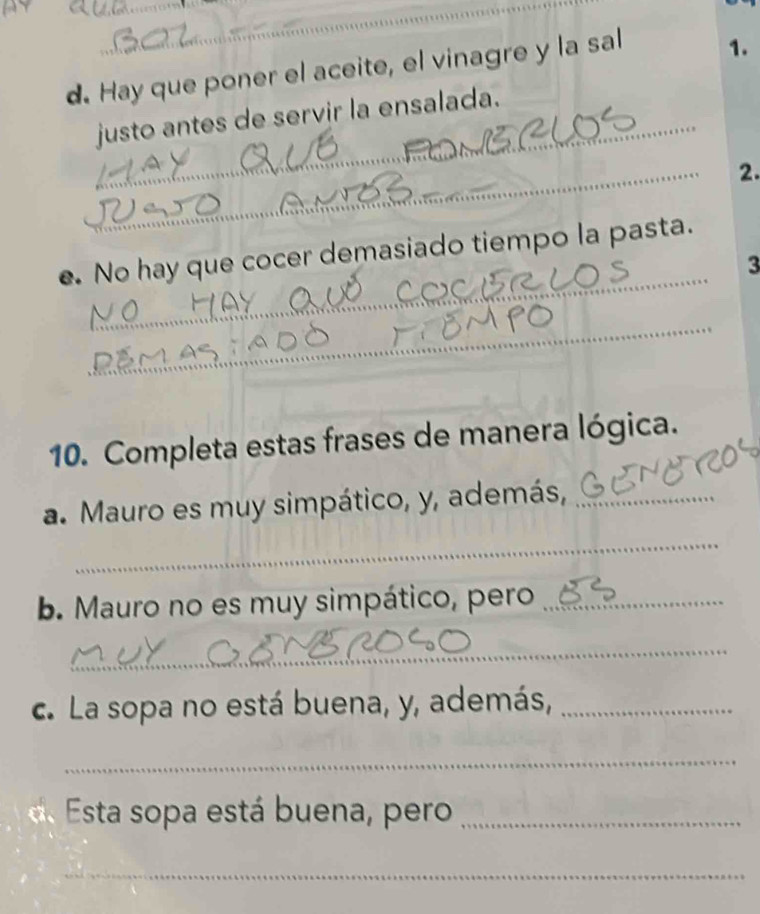 BOL ---
d. Hay que poner el aceite, el vinagre y la sal
1.
justo antes de servir la ensalada.
HAY QUE PONERLOS
JUSTO ANTES ---
2.
e. No hay que cocer demasiado tiempo la pasta.
3
NO HAY QUE COCERLOS
DEMASiADO TiEMPO
10. Completa estas frases de manera lógica.
a. Mauro es muy simpático, y, además, GENEROS
b. Mauro no es muy simpático, pero ES
MUY GENEROSO
c. La sopa no está buena, y, además,
d. Esta sopa está buena, pero